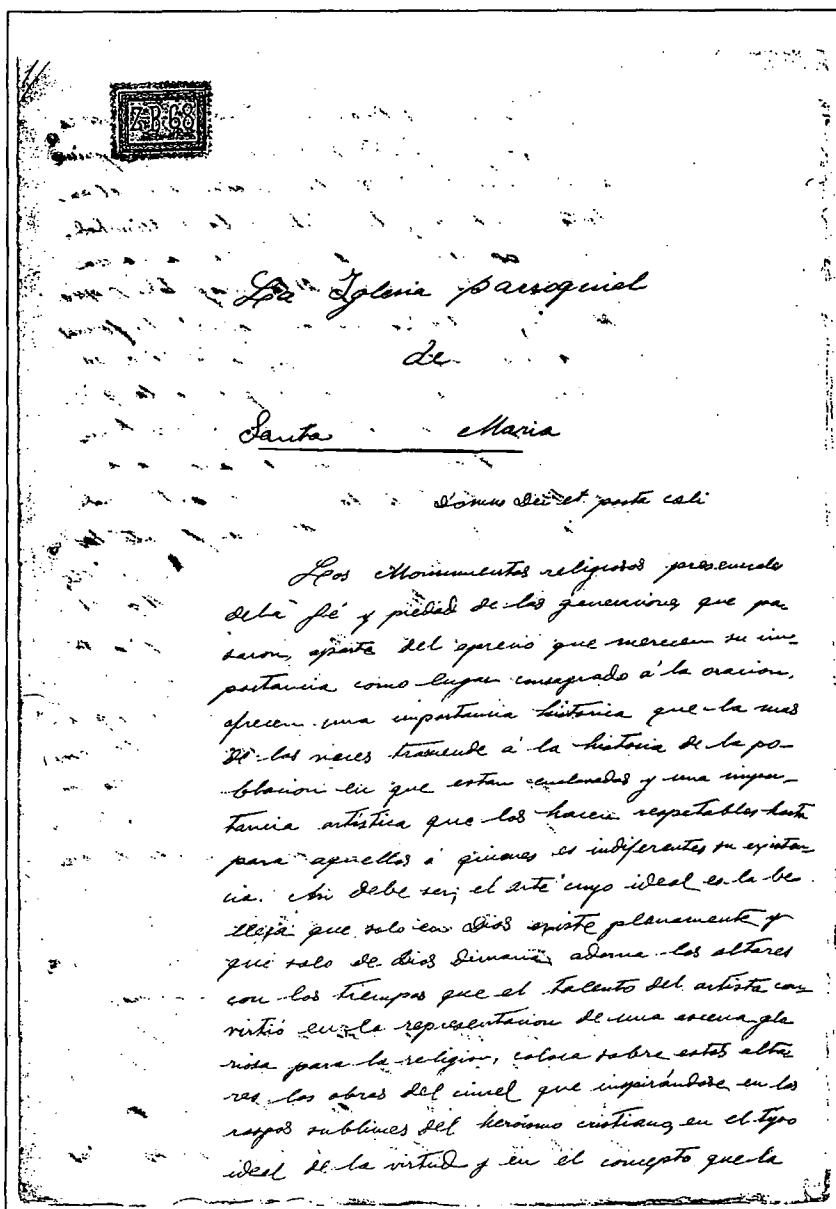 Z-B-68
La Iglesia parroquial
de
Santa Maria
Domus Dei et porta cœli
Los Monumentos religiosos
de la fé y piedad de las generaciones que pa-
saron, aparte del aprecio que merecen su im-
portancia como lugar consagrado á la oracion,
ofrecen una importancia historica que la mas
de las veces trasciende á la historia de la po-
blacion en que estan enclavados y una impor-
tancia artística que los hacen respetables hasta
para aquellos á quienes es indiferentes su existen-
cia. Asi debe ser; el arte cuyo ideal es la be-
lleza que solo en Dios existe planamente y
que solo de Dios dimana, adorna los altares
con los que el talento del artista con
virtió en la representacion de una escena glo
riosa para la religion, coloca sobre estos alta-
res las obras del cincel que inspirándose en los
rasgos sublimes del heroismo cristiano, en el tipo
ideal de la virtud y en el concepto que la